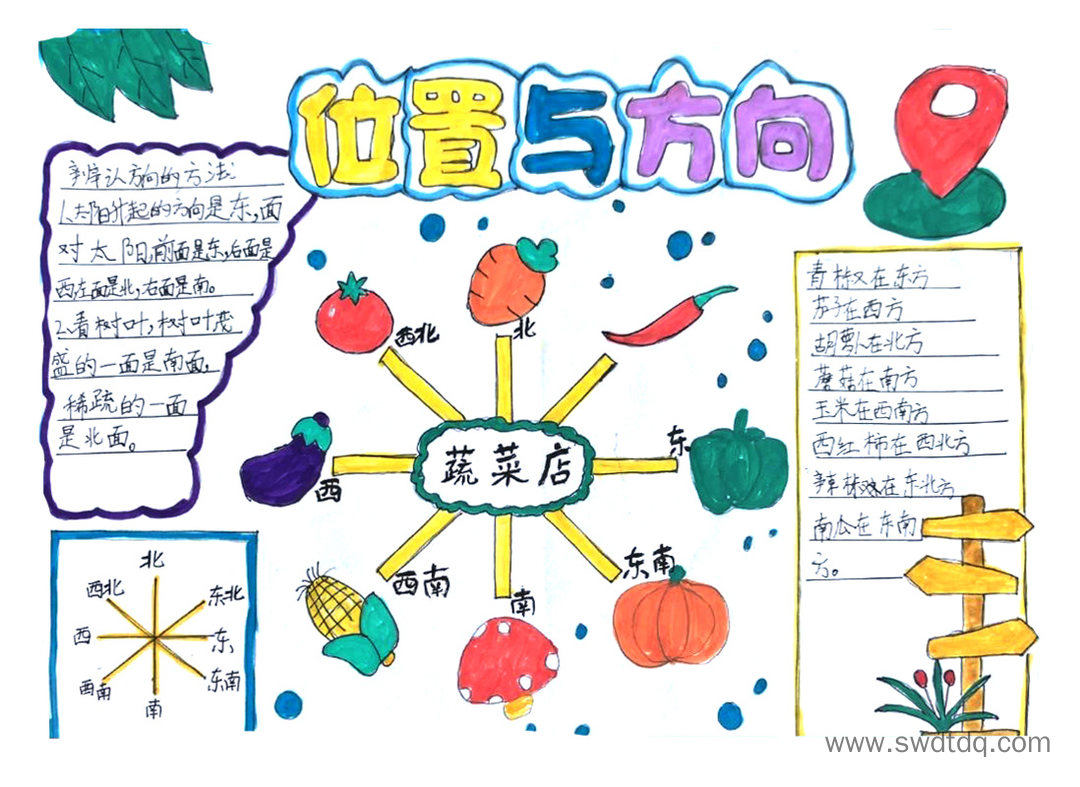 位置与方向
辨认方向的方法:
1.太阳升起的方向是东,面
对太阳,前面是东,后面是
西左面是北,右面是南。
2.看树叶,树叶茂
盛的一面是南面,
稀疏的一面
是北面。
西北
北
东
西
蔬菜店
西南
南
东南
北
西北
东北
西
东
西南
东南
南
青椒在东方
茄子在西方
胡萝卜在北方
蘑菇在南方
玉米在西南方
西红柿在西北方
辣椒在东北方
南瓜在东南
方。
www.swdtdq.com